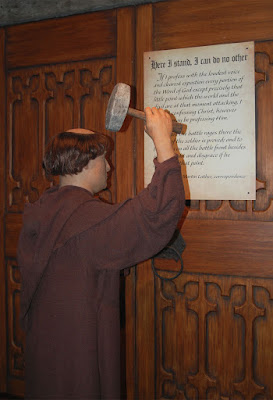 Here I stand, I can do no other
If I profess with the loudest voice
and clearest exposition every portion of
the Word of God except precisely that
little point which the world and the
devil are at that moment attacking, I
professing Christ, however
be professing Him.
battle rages there the
the soldier is proved; and to
on all the battle front besides
and disgrace if he
that point.
Martin Luther, correspondence